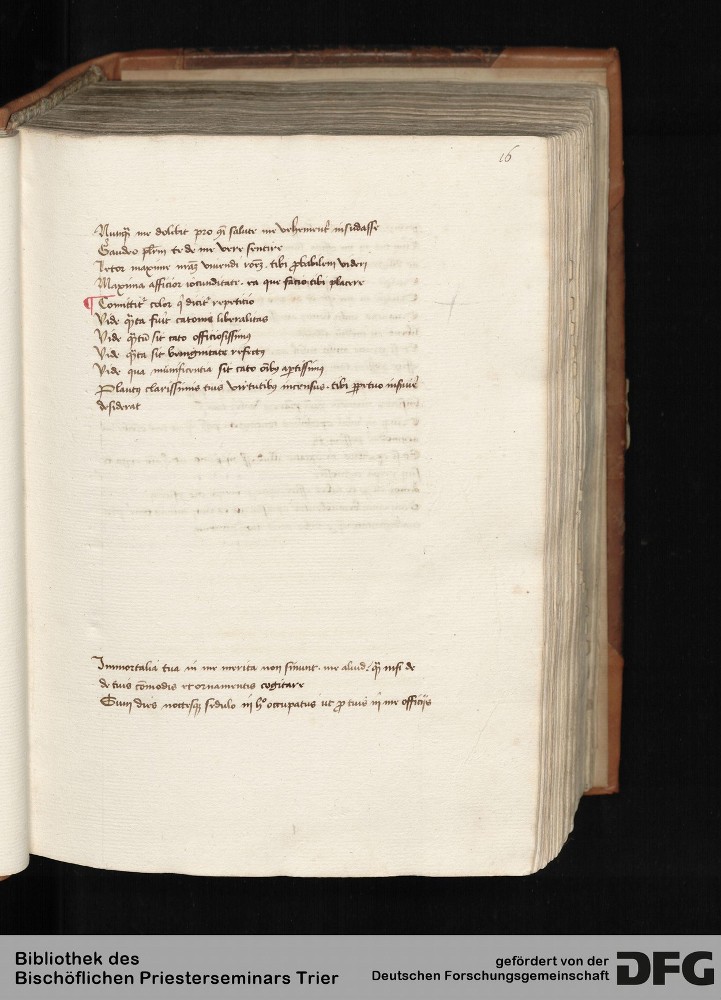 16
Nunq̃ me dolebit pro tua salute me vehement' insudasse
Gaudeo plm̃ te de me vere sentire
letor maxime mãz vivendi rõez tibi ꝓbabilem videri
Maxima afficior iocunditate ea que facio tibi placere
Comittit' color q̃ dicit' repeticio
Vide q̃ta fuit catonis liberalitas
Vide q̃tũ sit cato officiosissimus
Vide q̃ta sit benignitate refectus
Vide qua munificentia sit cato oĩbus aptissimus
Plautus clarissimis tuis virtutibus incensus tibi ꝑpetuo inservir̃
desiderat
Immortalia tua in me merita non sinunt me aliud q̃ nisi de
de tuis cõmodis et ornamentis cogitare
Sum dies noctesq̃ sedulo in h° occupatus ut ꝓ tuis in me officijs
Bibliothek des
Bischöflichen Priesterseminars Trier
gefördert von der
Deutschen Forschungsgemeinschaft
DFG